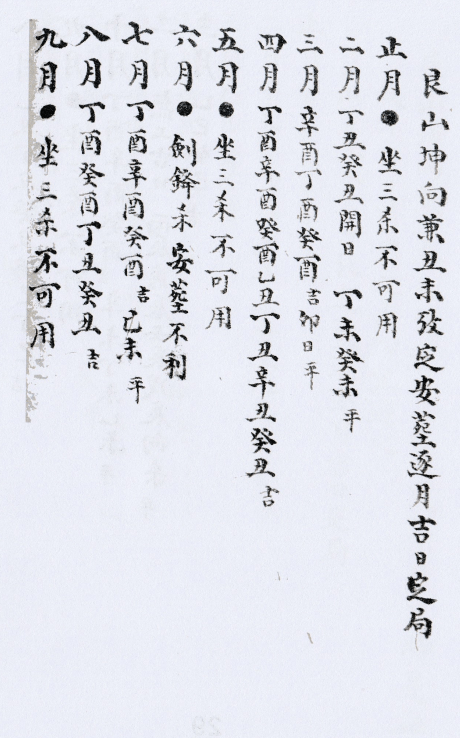 艮山坤向兼丑未攷定安葬逐月吉日定局
正月●坐三杀不可用
二月丁丑癸丑開日 丁未癸未平
三月辛酉丁酉癸酉吉卯日平
四月丁酉辛酉癸酉乙丑丁丑辛丑癸丑吉
五月●坐三杀不可用
六月●劍鋒杀安葬不利
七月丁酉辛酉癸酉吉己未平
八月丁酉癸酉丁丑癸丑吉
九月●坐三杀不可用